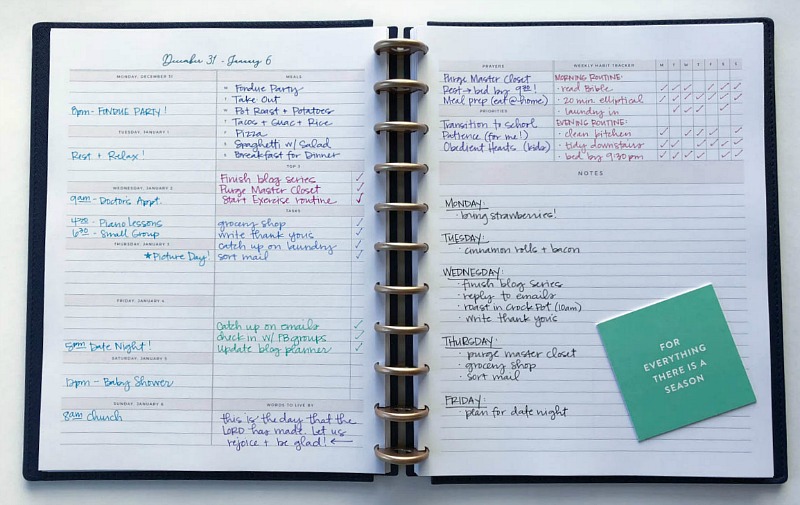 December 31 - January 6
MONDAY, DECEMBER 31
8pm - FONDUE PARTY!
TUESDAY, JANUARY 1
Rest + Relax!
WEDNESDAY, JANUARY 2
9am - Doctor's Appt.
4:00 - Piano Lessons
6:30 - Small Group
THURSDAY, JANUARY 3
★Picture Day!
FRIDAY, JANUARY 4
5pm Date Night!
SATURDAY, JANUARY 5
12pm - Baby Shower
SUNDAY, JANUARY 6
8am Church
MEALS
Fondue Party
Take Out
Pot Roast + Potatoes
Tacos + Guac + Rice
Pizza
Spaghetti w/ Salad
Breakfast for Dinner
TOP 3
Finish blog series ✓
Purge Master Closet ✓
Start Exercise routine ✓
TASKS
grocery shop ✓
write thank yous ✓
catch up on laundry ✓
sort mail ✓
Catch up on emails ✓
check in w/ FB groups ✓
update blog planner ✓
WORDS TO LIVE BY
this is the day that the
LORD has made. Let us
rejoice + be glad! ←
PRAYERS
Purge Master Closet
Rest → bed by 9:30!
Meal prep (eat @ home)
PRIORITIES
Transition to school
Patience (for me!)
Obedient Hearts (kids)
WEEKLY HABIT TRACKER M T W T F S S
MORNING ROUTINE:
· read Bible
· 20 min. elliptical
· laundry in
EVENING ROUTINE:
· clean kitchen
· tidy downstairs
· bed by 9:30pm
NOTES
MONDAY:
· bring strawberries!
TUESDAY:
· cinnamon rolls + bacon
WEDNESDAY:
· finish blog series
· reply to emails
· roast in Crock Pot (10am)
· write thank yous
THURSDAY:
· purge master closet
· grocery shop
· sort mail
FRIDAY:
· plan for date night
FOR
EVERYTHING
THERE IS A
SEASON